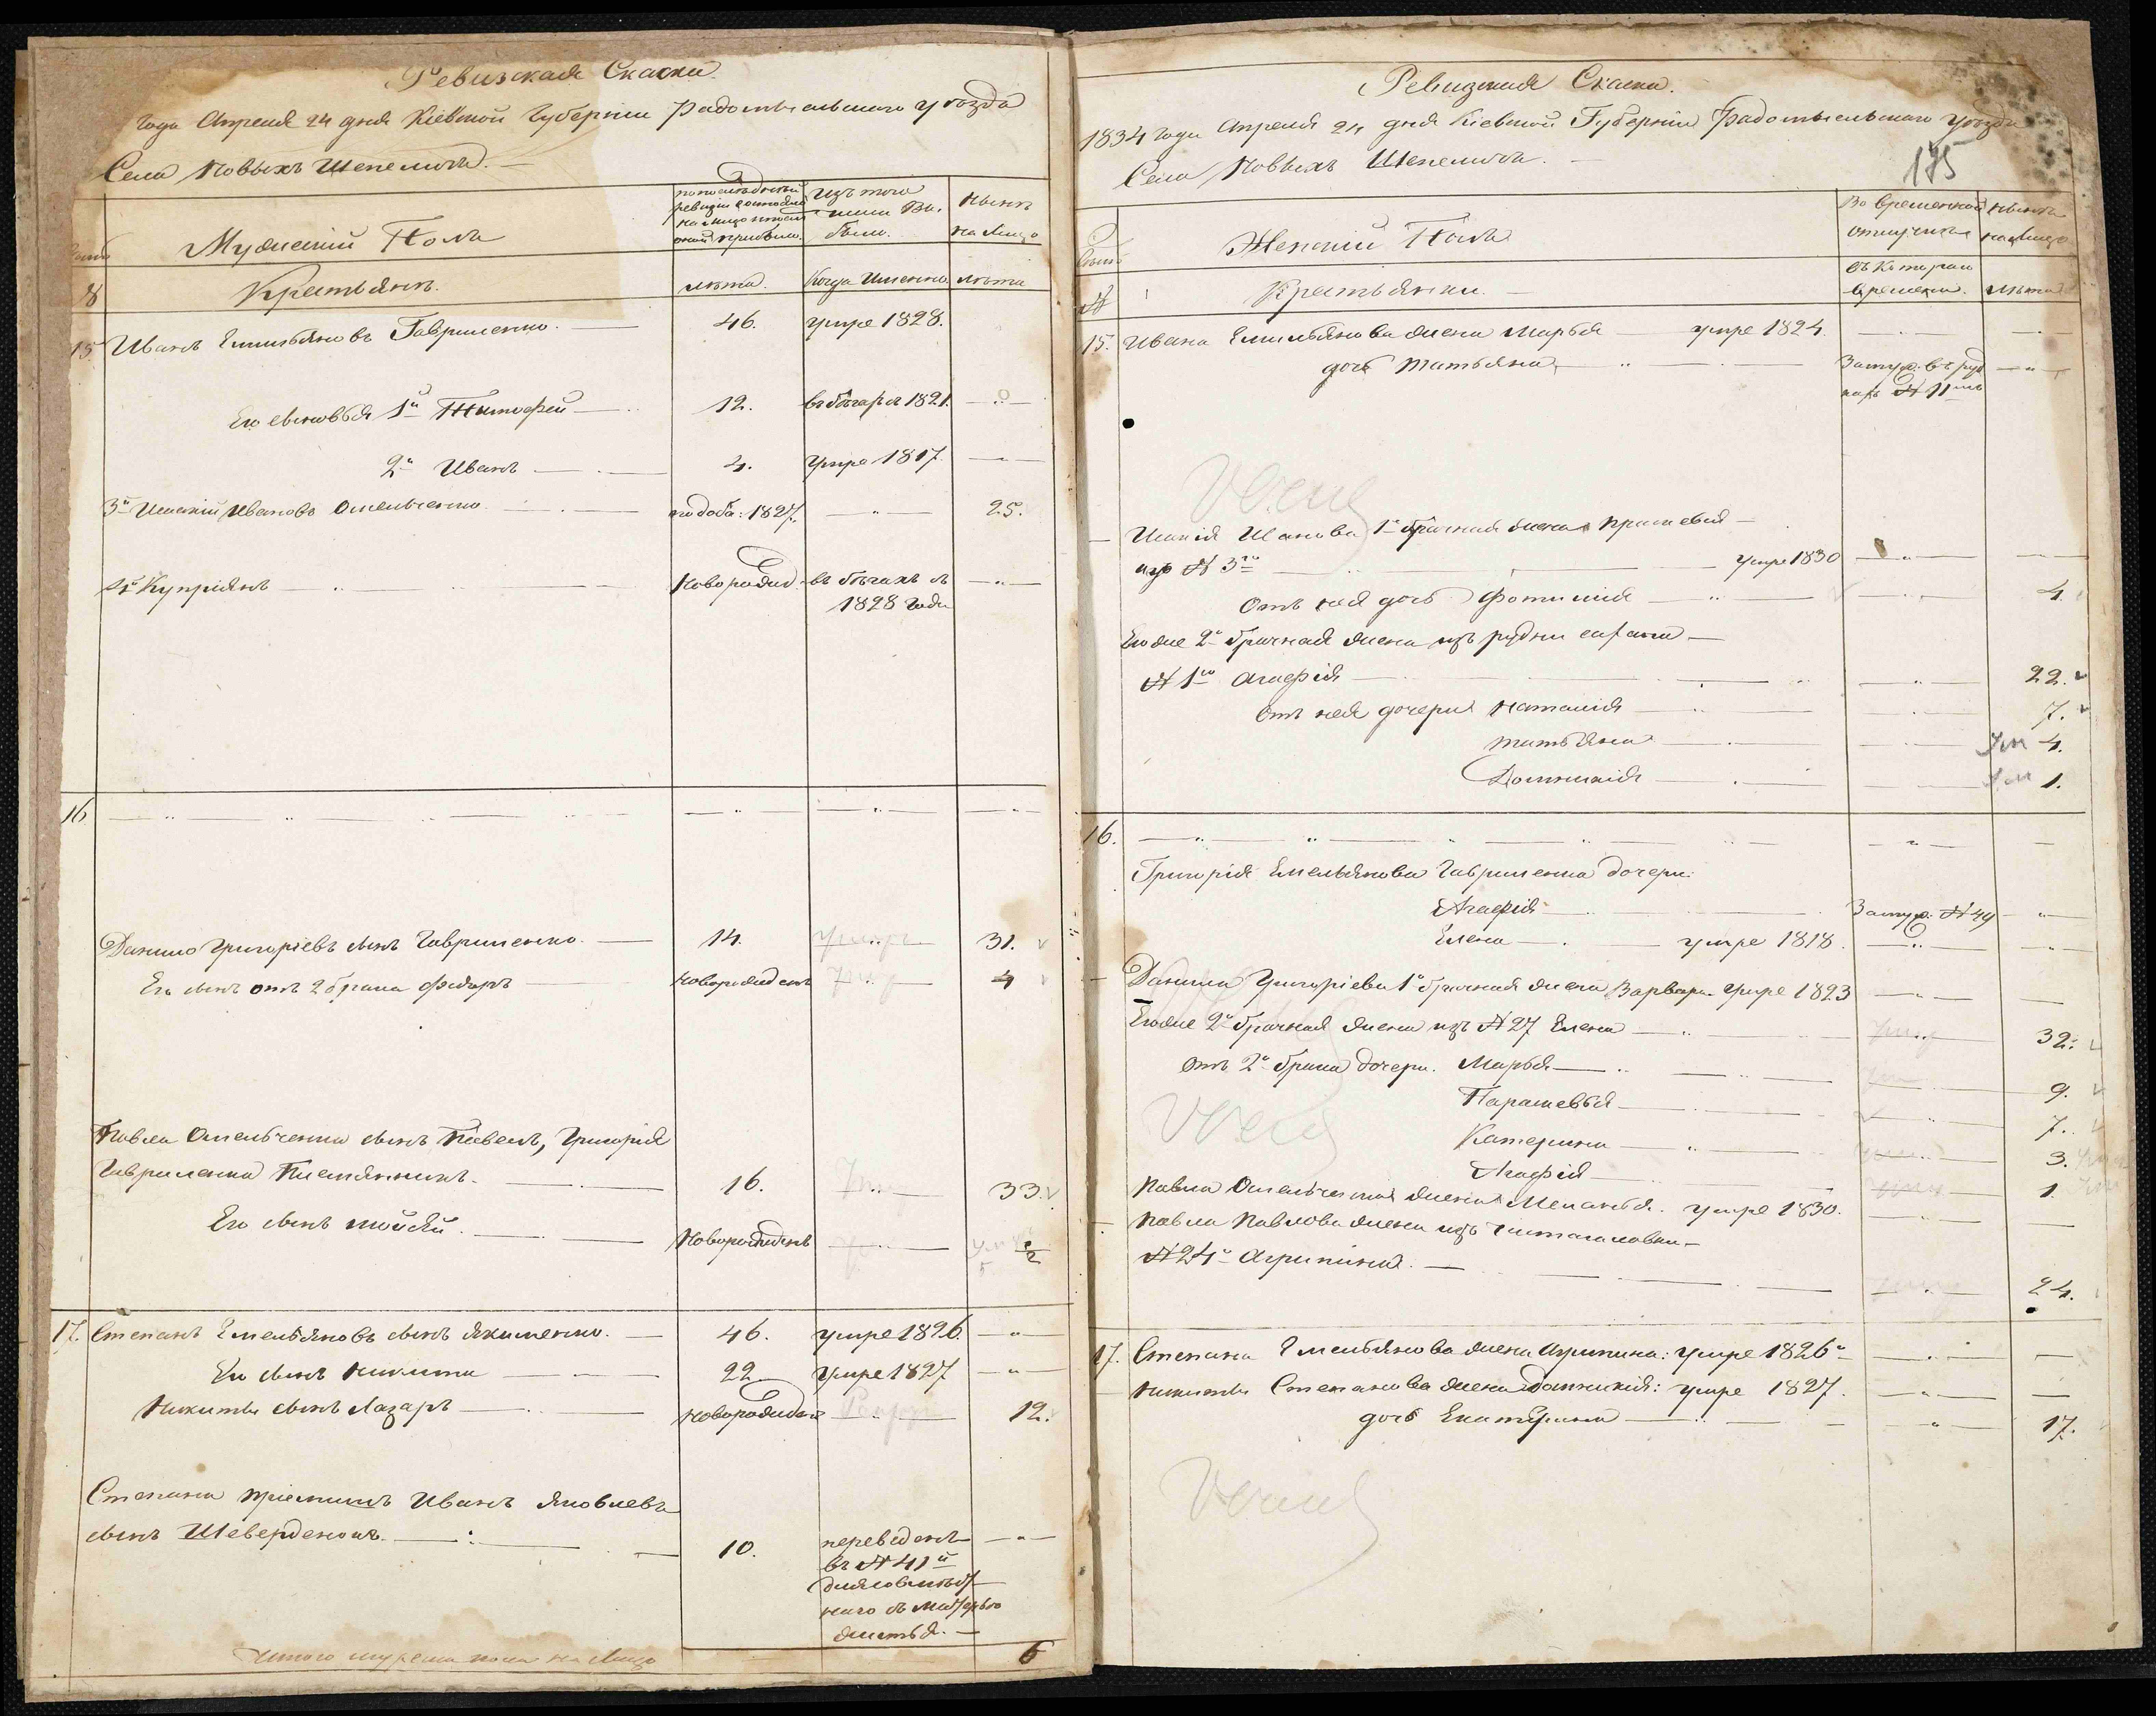 Ревизская Сказка
года Апреля 24 дня Кіевской Губерніи Радомысльского уѣзда
Села Новыхъ Шепеличъ. —
Мужескій Полъ
по послѣдней ревизіи состояло
Изъ того числа выбыло.
Нынѣ на лицо
№
Крестьянъ.
лѣта.
Когда Именно
лѣта
15 Иванъ Емильяновъ Гавриленко. — 46. умре 1828.
Его сыновья 1й Тимофей — 12. въ бѣгахъ съ 1821. — " —
2й Иванъ — 4. умре 1817. —
3й Ивановъ Омельченко подоба: 1827. — " — 25.
4й Купріянъ — Новорожд. въ бѣгахъ съ — " —
1828 года
16
Данило Григоріевъ сынъ Гавриленко. — 14. 31.
Его сынъ отъ 2 брака Фёдоръ — новорожденъ 4
Павла Омельченка сынъ Павелъ, Григорія
Гавриленка Племянникъ. — 16. 33.
Его сынъ Мойсей. — Новорожденъ — " — ½
17. Степанъ Емельяновъ сынъ Якименко. — 46. умре 1826. — " —
Его сынъ Никита — 22 умре 1827 — " —
Никиты сынъ Лазаръ — новорожденъ 12.
Степана пріемышъ Иванъ Яковлевъ
сынъ Шеверденокъ. — 10. переведенъ — " —
въ № 41й
для совмѣст-
наго съ матерью
житья. —
Итого мужеска пола на лицо 6
Ревизская Сказка.
1834 года Апреля 24 дня Кіевской Губерніи Радомысльского уѣзда
Села Новыхъ Шепеличъ. —
175
Женскій Полъ
Во временной отлучкѣ
Нынѣ на лицо
№
Крестьянки. —
Съ котораго времени.
лѣта
15. Ивана Емильянова жена Марья — умре 1824. —
дочь Татьяна — замуж. въ руд — " —
№ 11
Иванова 1 брачная жена Прасковья —
изъ № 3го — умре 1830 — " —
Отъ нея дочь — 4.
Его же 2 брачная жена изъ рудни —
№ 1го Агафія — 22.
Отъ нея дочери Наталія — 7.
Татьяна — Ум 4.
Домникія — Ум 1.
16.
Григорія Емельянова Гавриленка дочери:
Агафія — Замуж. № 49 — " —
Елена — умре 1818. — " —
Данила Григоріева 1 брачная жена Варвара умре 1823 — " —
Его же 2 брачная жена изъ № 27 Елена — 32.
отъ 2 брака дочери. Марья — 9.
Парасковья — 7.
Катерина — 3.
Агафія — 1.
Павла Омельченка жена Меланья. умре 1830. —
Павла Павлова жена изъ
№ 24 Агрипина. — 24.
17. Степана Емельянова жена Агрипина: умре 1826 —
Никиты Степанова жена Домникія: умре 1827. — " —
дочь Екатерина — " — 17.